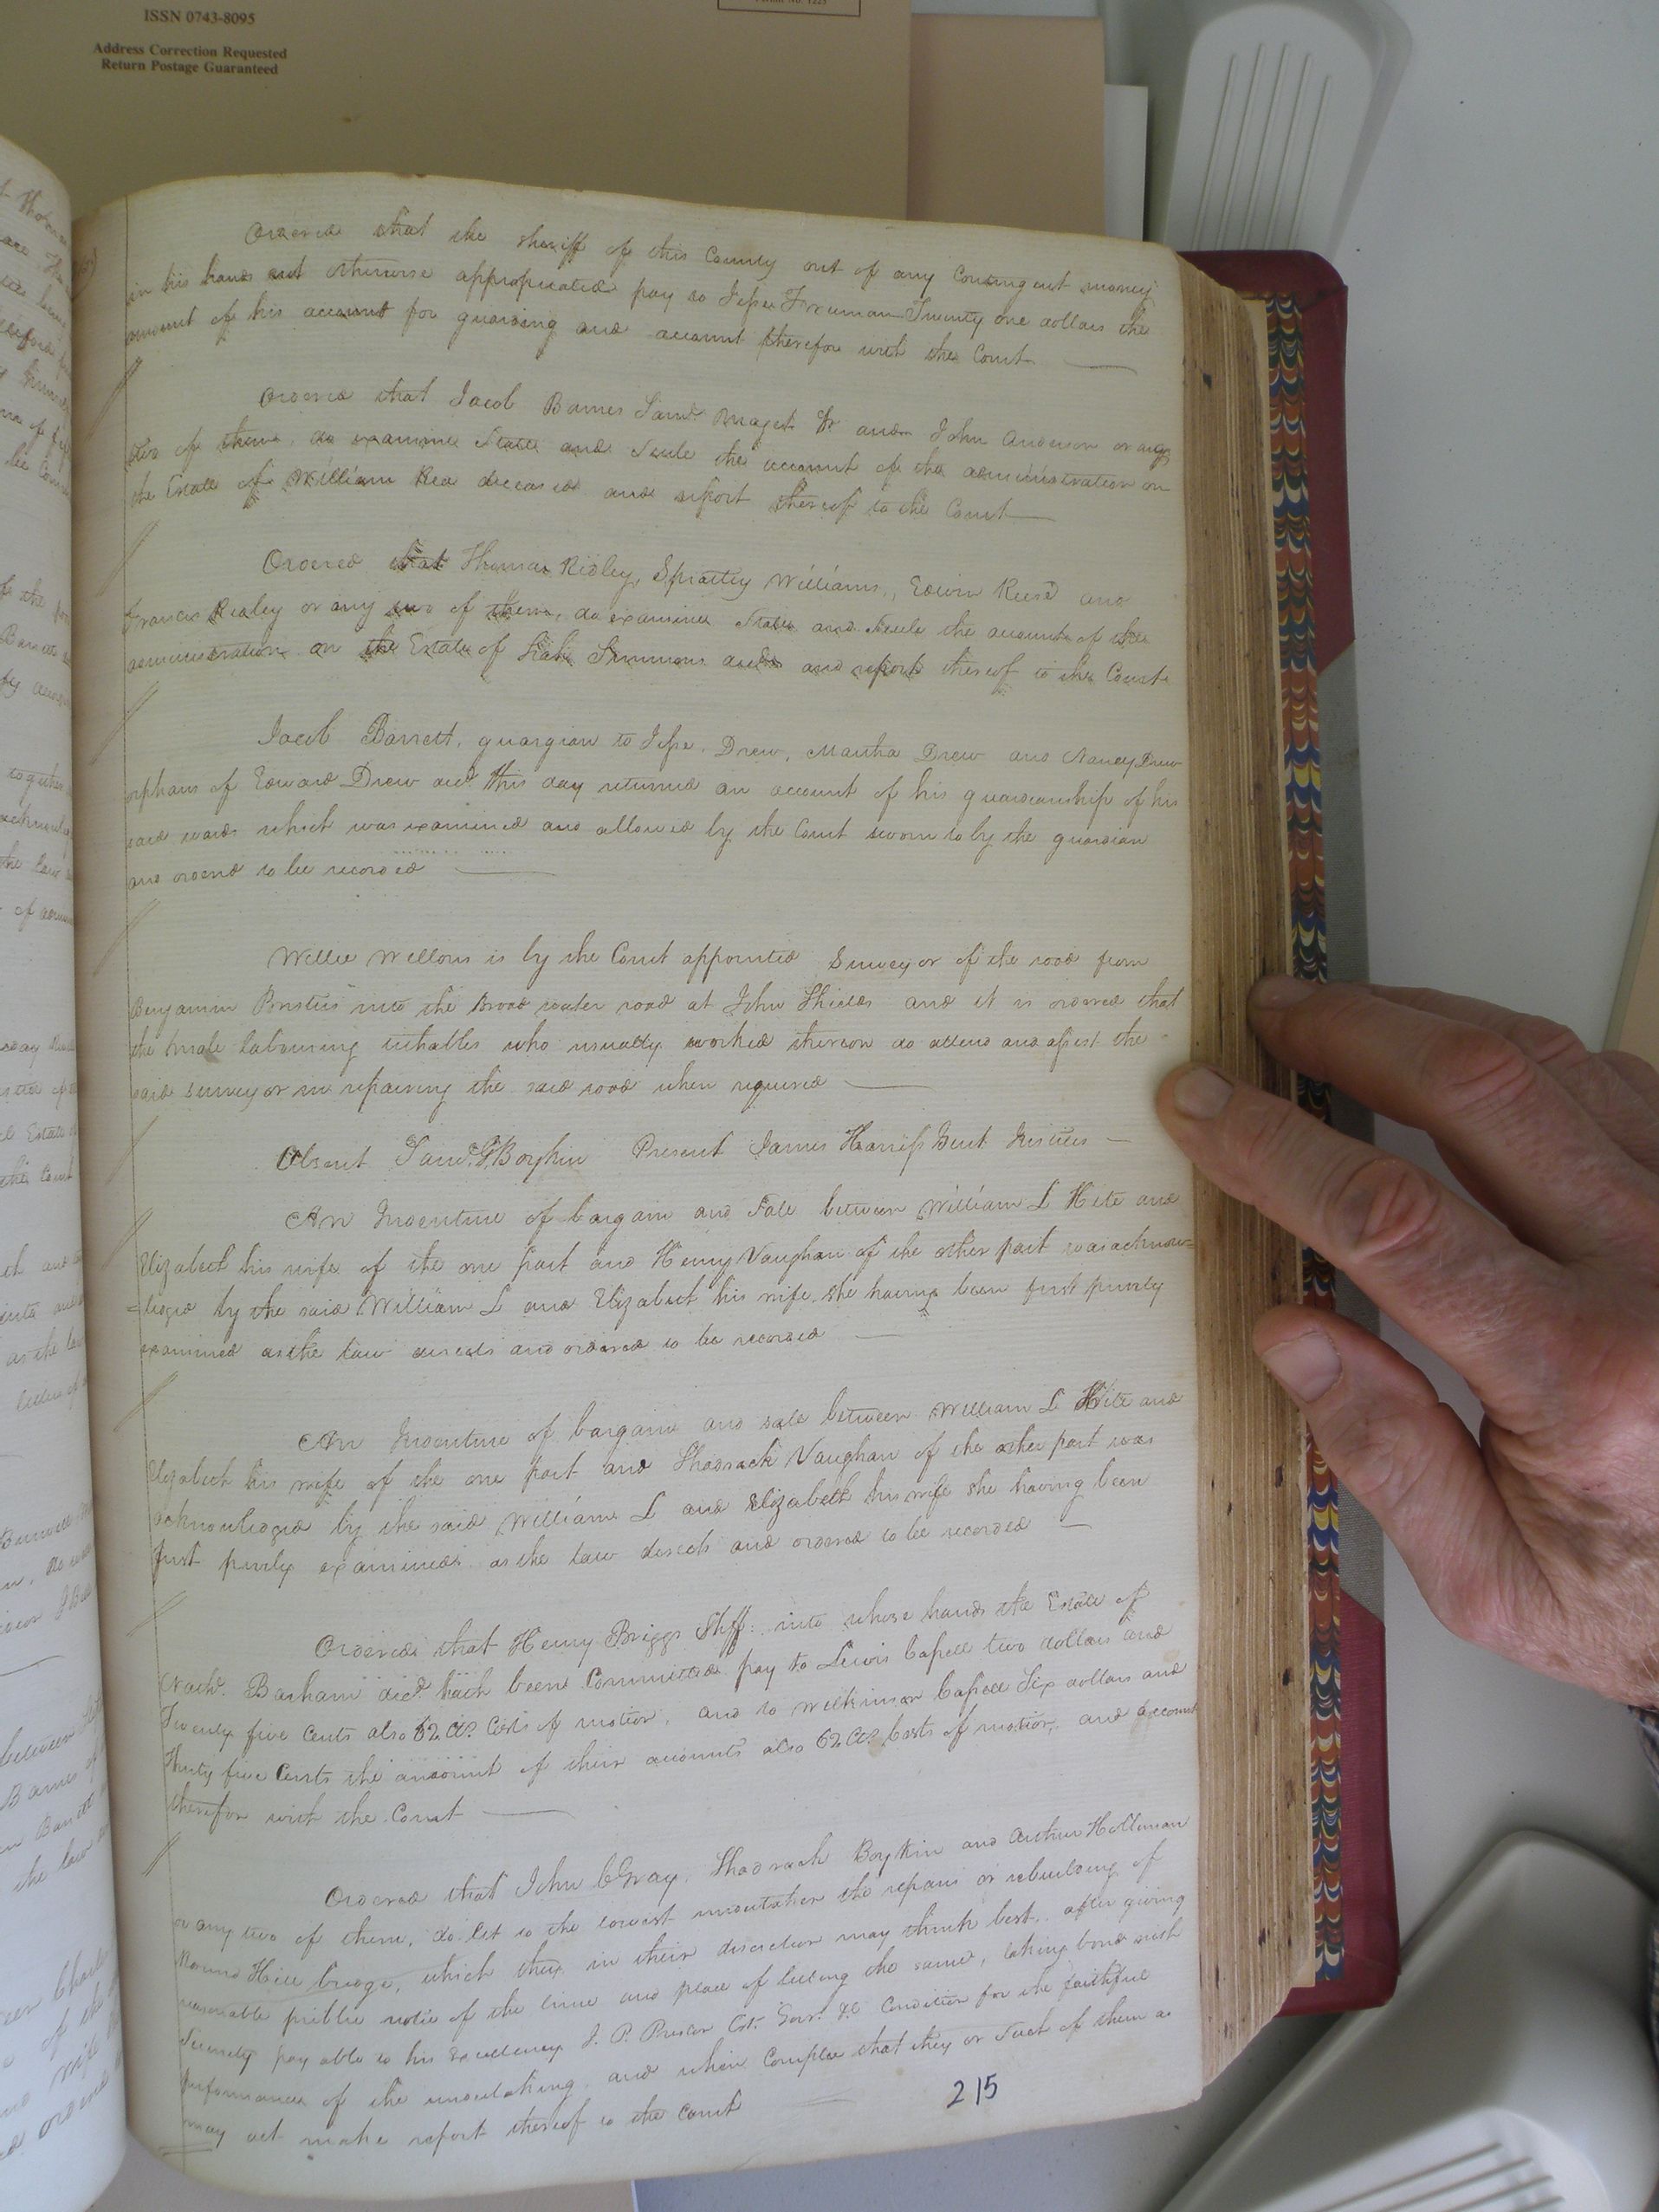 ISSN 0743-8095
Address Correction Requested
Return Postage Guaranteed
Ordered that the sheriff of this County out of any Contingent money
in his hands not otherwise appropriated pay to Jesse Freeman Twenty one dollars the
amount of his account for guarding and account therefor with the Court
Ordered that Jacob Barnes Saml Maget Jr and John Anderson or any
two of them, do examine State and Settle the account of the administration on
the Estate of William Rea deceased and report thereof to the Court
Ordered that Thomas Ridley, Spratley Williams, Edwin and
Francis Ridley or any two of them, do examine State and Settle the accounts of the
administration on the Estate of Simmons decd and report thereof to the Court
Jacob Barrett, guargian to Jesse Drew, Martha Drew and Nancy Drew
orphans of Edward Drew decd this day returned an account of his guardianship of his
said wards which was examined and allowed by the Court sworn to by the guardian
and ordered to be recorded
Willie Wellons is by the Court appointed Surveyor of the road from
Benjamin into the Broad water road at John Shields and it is ordered that
the male labouring tithables who usually worked thereon do attend and assist the
said surveyor in repairing the said road when required
Absent Saml. Boykin Present James Harriss Gent Justices
An Indenture of bargain and Sale between William L Hite and
Elizabeth his wife of the one part and Henry Vaughan of the other part was acknow=
=ledged by the said William L and Elizabeth his wife, she having been first privily
examined as the law directs and ordered to be recorded
An Indenture of bargain and sale between William L Hite and
Elizabeth his wife of the one part and Shadrack Vaughan of the other part was
acknowledged by the said William L and Elizabeth his wife she having been
first privily examined as the law directs and ordered to be recorded
Ordered that Henry Briggs Shff: into whose hands the Estate of
Nathl. Barham decd. hath been Committed pay to Lewis Capell two dollars and
Twenty five Cents also 62 Cts Costs of motion, and to Wilkinson Capell Six dollars and
Thirty five Cents the amount of their accounts also 62 Cts Costs of motion, and account
therefor with the Court
Ordered that John C Gray, Shadrach Boykin and Arthur Holleman
or any two of them, do let to the lowest undertaker the repairs or rebuilding of
Round Hill bridge, which they in their discretion may think best, after giving
reasonable public notice of the time and place of letting the same, taking bond with
Security payable to his Excellency J. P. Preston Esr. Govr. &c Condition for the faithful
performance of the undertaking and when Complete that they or such of them as
may act make report thereof to the Court
215